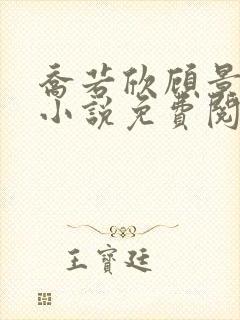 乔若欣顾景
小说免费阅
王宝廷